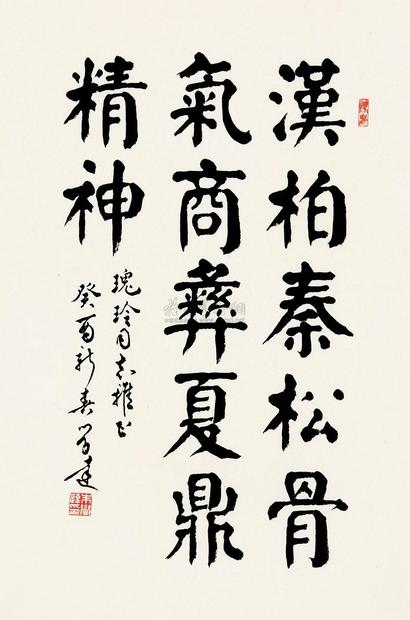 漢柏秦松骨
氣商彝夏鼎
精神
瑰玲同志雅正
癸酉新春学達